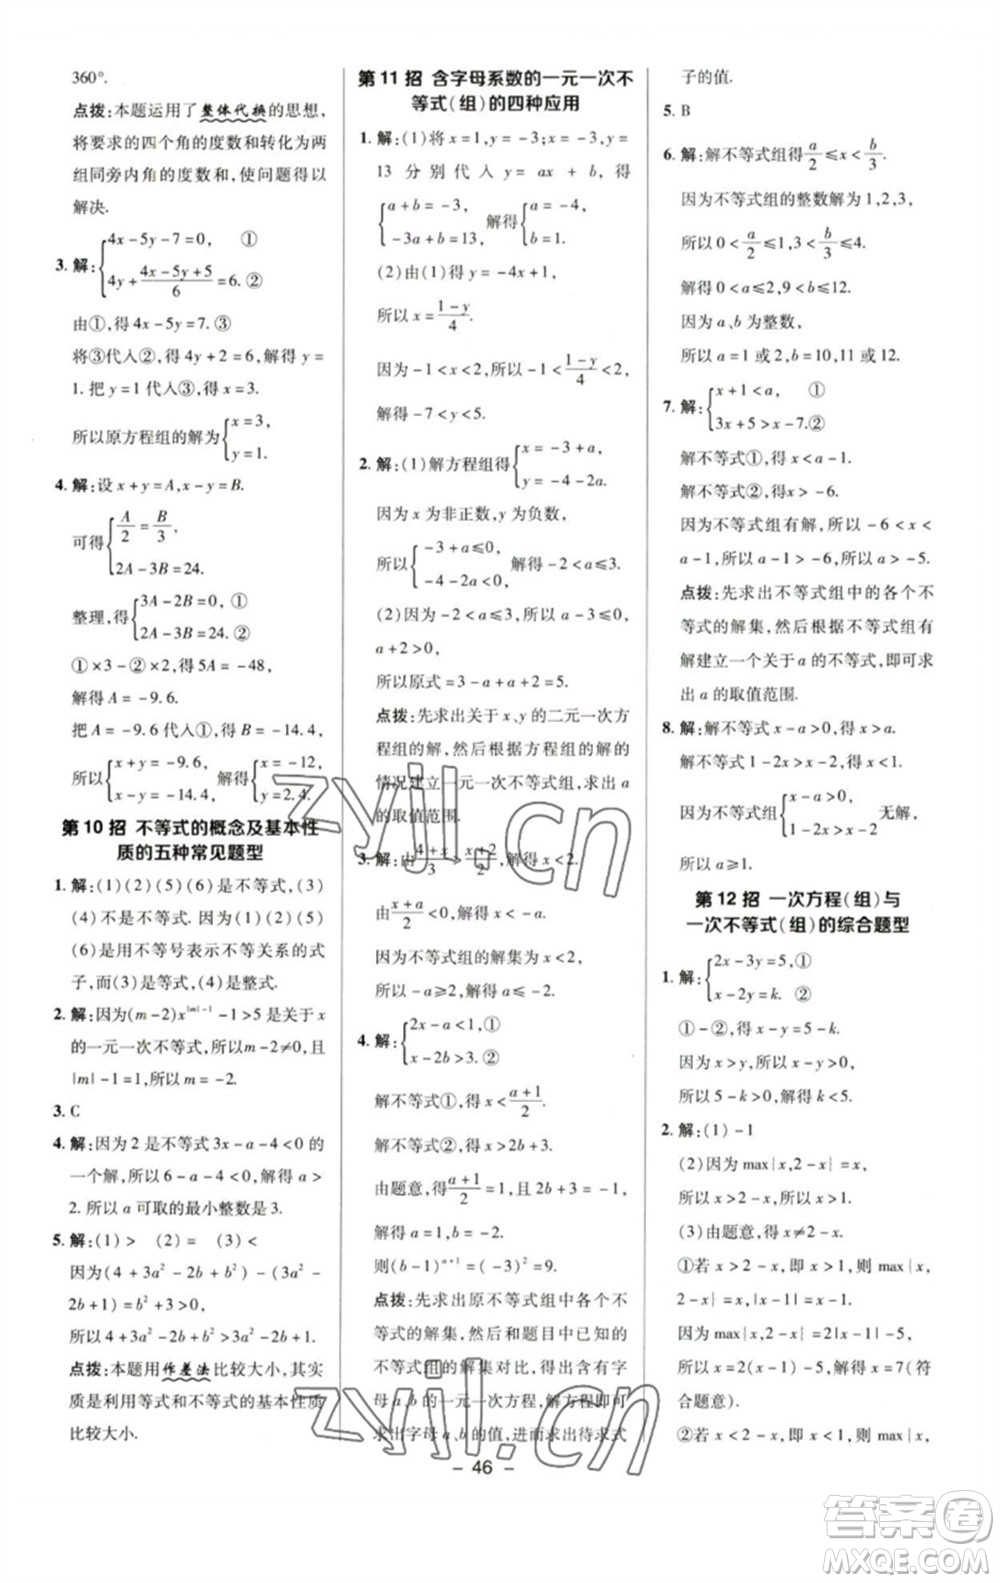 360°.
点拨:本题运用了整体代换的思想,
将要求的四个角的度数和转化为两
组同旁内角的度数和,使问题得以
解决.
3. 解:{4x-5y-7=0, ①
4y+(4x-5y+5)/6=6. ②
由①,得4x-5y=7. ③
将③代入②,得4y+2=6,解得y=
1. 把y=1代入③,得x=3.
所以原方程组的解为{x=3, y=1.
4. 解:设x+y=A,x-y=B.
可得{A/2=B/3, 2A-3B=24.
整理,得{3A-2B=0, ① 2A-3B=24. ②
①×3-②×2,得5A=-48,
解得A=-9.6.
把A=-9.6代入①,得B=-14.4,
所以{x+y=-9.6, x-y=-14.4. 解得{x=-12, y=2.4.
第10招 不等式的概念及基本性
质的五种常见题型
1. 解:(1)(2)(5)(6)是不等式,(3)
(4)不是不等式. 因为(1)(2)(5)
(6)是用不等号表示不等关系的式
子,而(3)是等式,(4)是整式.
2. 解:因为(m-2)x^(|m|-1)-1>5是关于x
的一元一次不等式,所以m-2≠0,且
|m|-1=1,所以m=-2.
3. C
4. 解:因为2是不等式3x-a-4<0的
一个解,所以6-a-4<0,解得a>
2. 所以a可取的最小整数是3.
5. 解:(1)> (2)= (3)<
因为(4+3a²-2b+b²)-(3a²-
2b+1)=b²+3>0,
所以4+3a²-2b+b²>3a²-2b+1.
点拨:本题用作差法比较大小,其实
质是利用等式和不等式的基本性质
比较大小.
第11招 含字母系数的一元一次不
等式(组)的四种应用
1. 解:(1)将x=1,y=-3;x=-3,y=
13分别代入y=ax+b,得
{a+b=-3, -3a+b=13, 解得{a=-4, b=1.
(2)由(1)得y=-4x+1,
所以x=(1-y)/4.
因为-1<x<2,所以-1<(1-y)/4<2,
解得-7<y<5.
2. 解:(1)解方程组得{x=-3+a, y=-4-2a.
因为x为非正数,y为负数,
所以{-3+a≤0, -4-2a<0. 解得-2<a≤3.
(2)因为-2<a≤3,所以a-3≤0,
a+2>0,
所以原式=3-a+a+2=5.
点拨:先求出关于x、y的二元一次方
程组的解,然后根据方程组的解的
情况建立一元一次不等式组,求出a
的取值范围.
3. 解:由(4+x)/3>(x+2)/2,解得x<2.
由(x+a)/2<0,解得x<-a.
因为不等式组的解集为x<2,
所以-a≥2,所以a≤-2.
4. 解:{2x-a<1, ① x-2b>3. ②
解不等式①,得x<(a+1)/2.
解不等式②,得x>2b+3.
由题意,得(a+1)/2=1,2b+3=-1,
解得a=1,b=-2.
则(b-1)^(a+1)=(-3)²=9.
点拨:先求出原不等式组中各不等
式的解集,然后和题目中已知的不
等式组的解集对比,得出含有字
母a、b的一元一次方程,解方程即可
求出字母a、b的值,进而求出待求式
子的值.
5. B
6. 解:解不等式组得a/2≤x<b/3.
因为不等式组的整数解为1,2,3,
所以0<a/2≤1,3<b/3≤4.
所以0<a≤2,9<b≤12.
因为a、b为整数,
所以a=1或2,b=10,11或12.
7. 解:{x+1<a, ① 3x+5>x-7. ②
解不等式①,得x<a-1.
解不等式②,得x>-6.
因为不等式组有解,所以-6<x<
a-1,所以a-1>-6,所以a>-5.
点拨:先求出不等式组中的各个不
等式的解集,然后根据不等式组有
解建立一个关于a的不等式,即可求
出a的取值范围.
8. 解:解不等式x-a>0,得x>a.
解不等式1-2x>x-2,得x<1.
因为不等式组{x-a>0, 1-2x>x-2 无解,
所以a≥1.
第12招 一次方程(组)与
一次不等式(组)的综合题型
1. 解:{2x-3y=5, ① x-2y=k. ②
①-②,得x-y=5-k.
因为x>y,所以x-y>0.
所以5-k>0,解得k<5.
2. 解:(1)-1
(2)因为max|x,2-x|=x,
所以x>2-x,所以x>1.
(3)由题意,得x≠2-x,所以x≠1.
①若x>2-x,即x>1,则max|x,
2-x|=x,
因为max|x,2-x|=2|x|-|-7|,
所以x=2x-7,解得x=7(符
合题意).
②若x<2-x,即x<1,则max|x,
- 46 -
zyjl.cn
zyjl.cn
答案圈
MXQE.COM